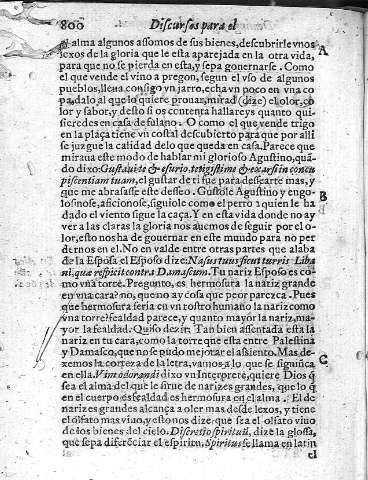 800 Discursos para el
el alma algunos assomos de sus bienes, descubrirle vnos
lexos de la gloria que le esta aparejada en la otra vida,
para que no se pierda en esta, y sepa gouernarse. Como
el que vende el vino a pregon, segun el vso de algunos
pueblos, lleua consigo vn jarro, echa vn poco en vna co
pa, dalo al que lo quiere prouar, mirad (dize) el olor, co
lor y sabor, y desto si os contenta hallareys quanto qui
sieredes en casa de fulano. O como el que vende trigo
en la plaça tiene vn costal descubierto para que por alli
se juzgue la calidad delo que queda en casa. Parece que
miraua este modo de hablar mi glorioso Agustino, quã
do dixo: Gustaui te & esurio, tetigisti me & exarsi in concu
piscentiam tuam, el gustar de ti fue para dessearte mas, y
que me abrasasse este desseo. Gustole Agustino y engo-
losinose, aficionose, siguiole como el perro a quien le ha
dado el viento sigue la caça. Y en esta vida donde no ay
ver a las claras la gloria nos auemos de seguir por el o-
lor, esto nos ha de gouernar en este mundo para no per
dernos en el. No en valde entre otras partes que alaba
de la Esposa el Esposo dize: Nasus tuus sicut turris Liba
ni, quæ respicit contra Damascum. Tu nariz Esposo es co-
mo vna torre. Pregunto, es hermosura la nariz grande
en vna cara? no, que no ay cosa que peor parezca. Pues
que hermosura seria en vn rostro humano la nariz como
vna torre? fealdad parece, y quanto mayor la nariz, ma-
yor la fealdad. Quiso dezir: Tan bien assentada esta la
nariz en tu cara, como la torre que esta entre Palestina
y Damasco, que no se pudo mejorar el assiento. Mas de-
xemos la corteza de la letra, vamos a lo que se significa
en ella. Vim odorandi dixo vn Interprete, quiere Dios q̃
sea el alma del que le sirue de narizes grandes, que lo q̃
en el cuerpo es fealdad es hermosura en el alma. El de
narizes grandes alcança a oler mas desde lexos, y tiene
el olfato mas viuo, y esto nos dize: que sea el olfato viuo
de los bienes del cielo. Discretio spirituũ, dize la glossa,
que sepa diferẽciar el espiritu, Spiritus se llama en latin
el
A
B
C